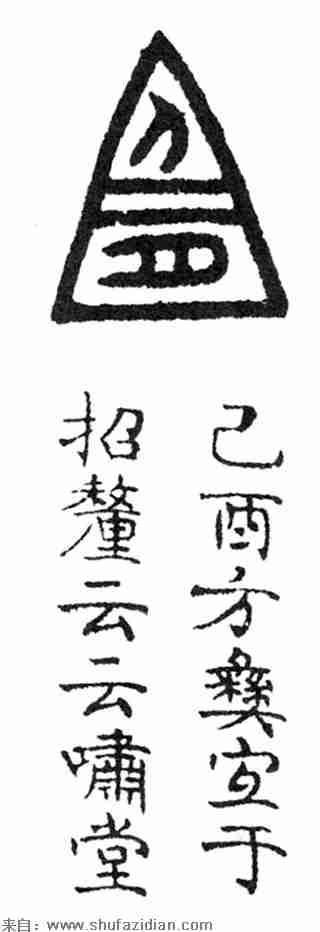 己酉方彝宜于
招釐云云嘯堂
来自：www.shufazidian.com